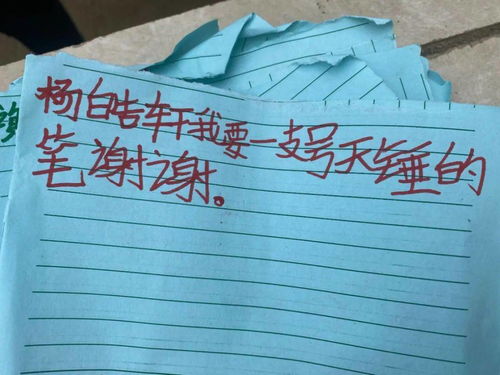 杨皓轩我要一支号天锤的
笔谢谢。